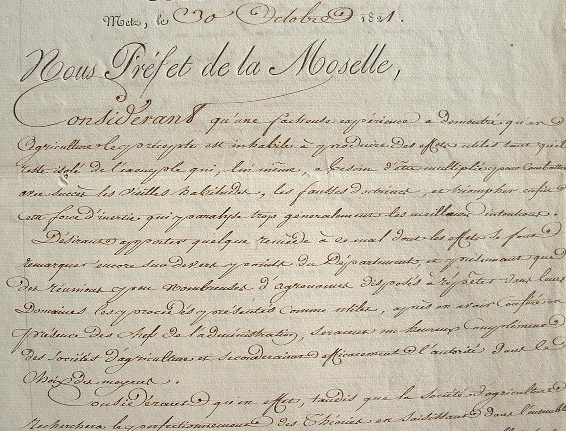 Metz, le 30 Octobre 1821.
Nous Préfet de la Moselle,
Considérant qu'une facheuse expérience a demontré, qu'en
agriculture le précepte est inhabile à produire des effets utiles tant qu'il
reste isolé de l'exemple qui, lui même, a besoin d'être multiplié pour combattre
avec succès les vieilles habitudes, les fausses doctrines, et triompher enfin de
cette force d'inertie qui paralyse trop généralement les meilleures intentions.
Désirant apporter quelque remède à ce mal dont les effets se font
remarquer encore sur divers points du Département, et présumant que
des réunions peu nombreuses d'agronomes disposés à répéter dans leurs
Domaines les procédés présentés comme utiles, après en avoir conféré en
présence des chefs de l'administration, seraient un heureux complément
des sociétés d'agriculture et seconderaient efficacement l'autorité dans le
choix des moyens.
Considérant qu'en effet, tandis que la Société d'agriculture
recherchera le perfectionnement des Théories en saisissant dans l'ensemble